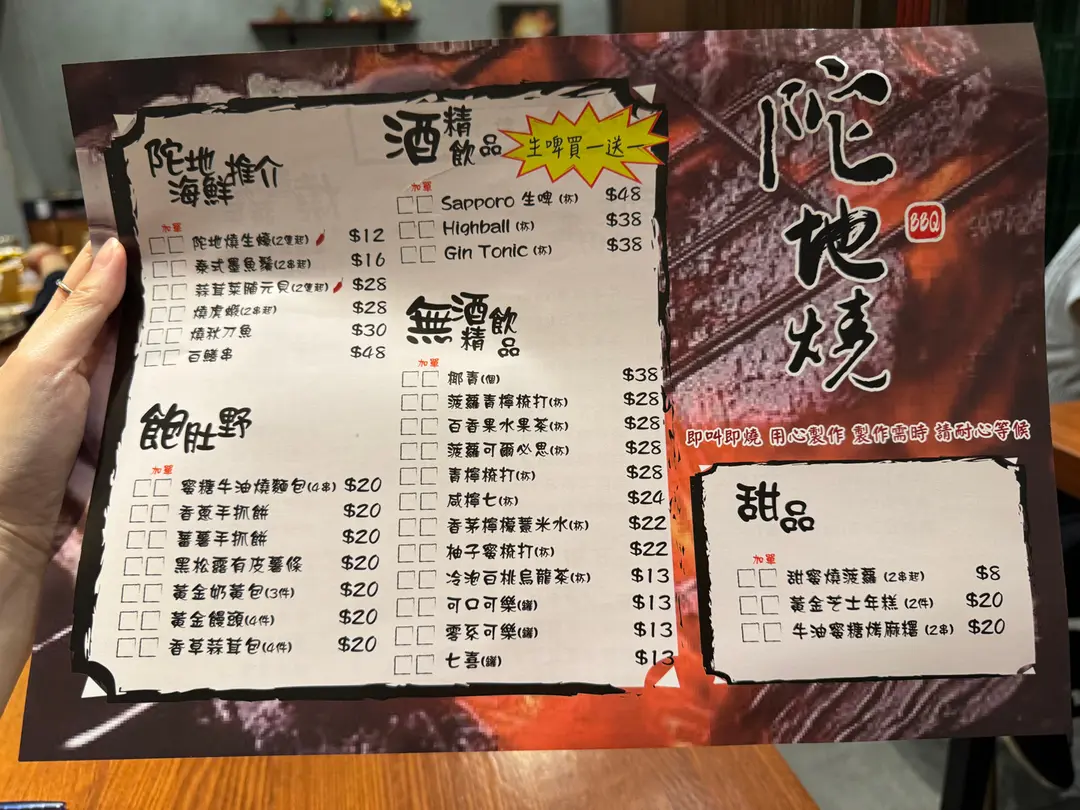 陀地
海鮮推介
加單
陀地燒生蠔(2隻起) $12
泰式墨魚鬚(2串起) $16
蒜茸菜脯元貝(2隻起) $28
燒虎蝦(2串起) $28
燒秋刀魚 $30
百鱔串 $48
飽肚野
加單
蜜糖牛油燒麵包(4串) $20
香蔥手抓餅 $20
蕃薯手抓餅 $20
黑松露有皮薯條 $20
黃金奶黃包(3件) $20
黃金饅頭(4件) $20
香草蒜茸包(4件) $20
酒精飲品
生啤買一送一
加單
Sapporo 生啤 (杯) $48
Highball (杯) $38
Gin Tonic (杯) $38
無酒精飲品
加單
椰青(個) $38
菠蘿青檸梳打(杯) $28
百香果水果茶(杯) $28
菠蘿可爾必思(杯) $28
青檸梳打(杯) $28
咸檸七(杯) $24
香茅檸檬薏米水(杯) $22
柚子蜜梳打(杯) $22
冷泡百桃烏龍茶(杯) $13
可口可樂(罐) $13
零系可樂(罐) $13
七喜(罐) $13
陀地燒
BBQ
即叫即燒 用心製作 製作需時 請耐心等候
甜品
加單
甜蜜燒菠蘿 (2串起) $8
黃金芝士年糕 (2件) $20
牛油蜜糖烤麻糬 (2串) $20